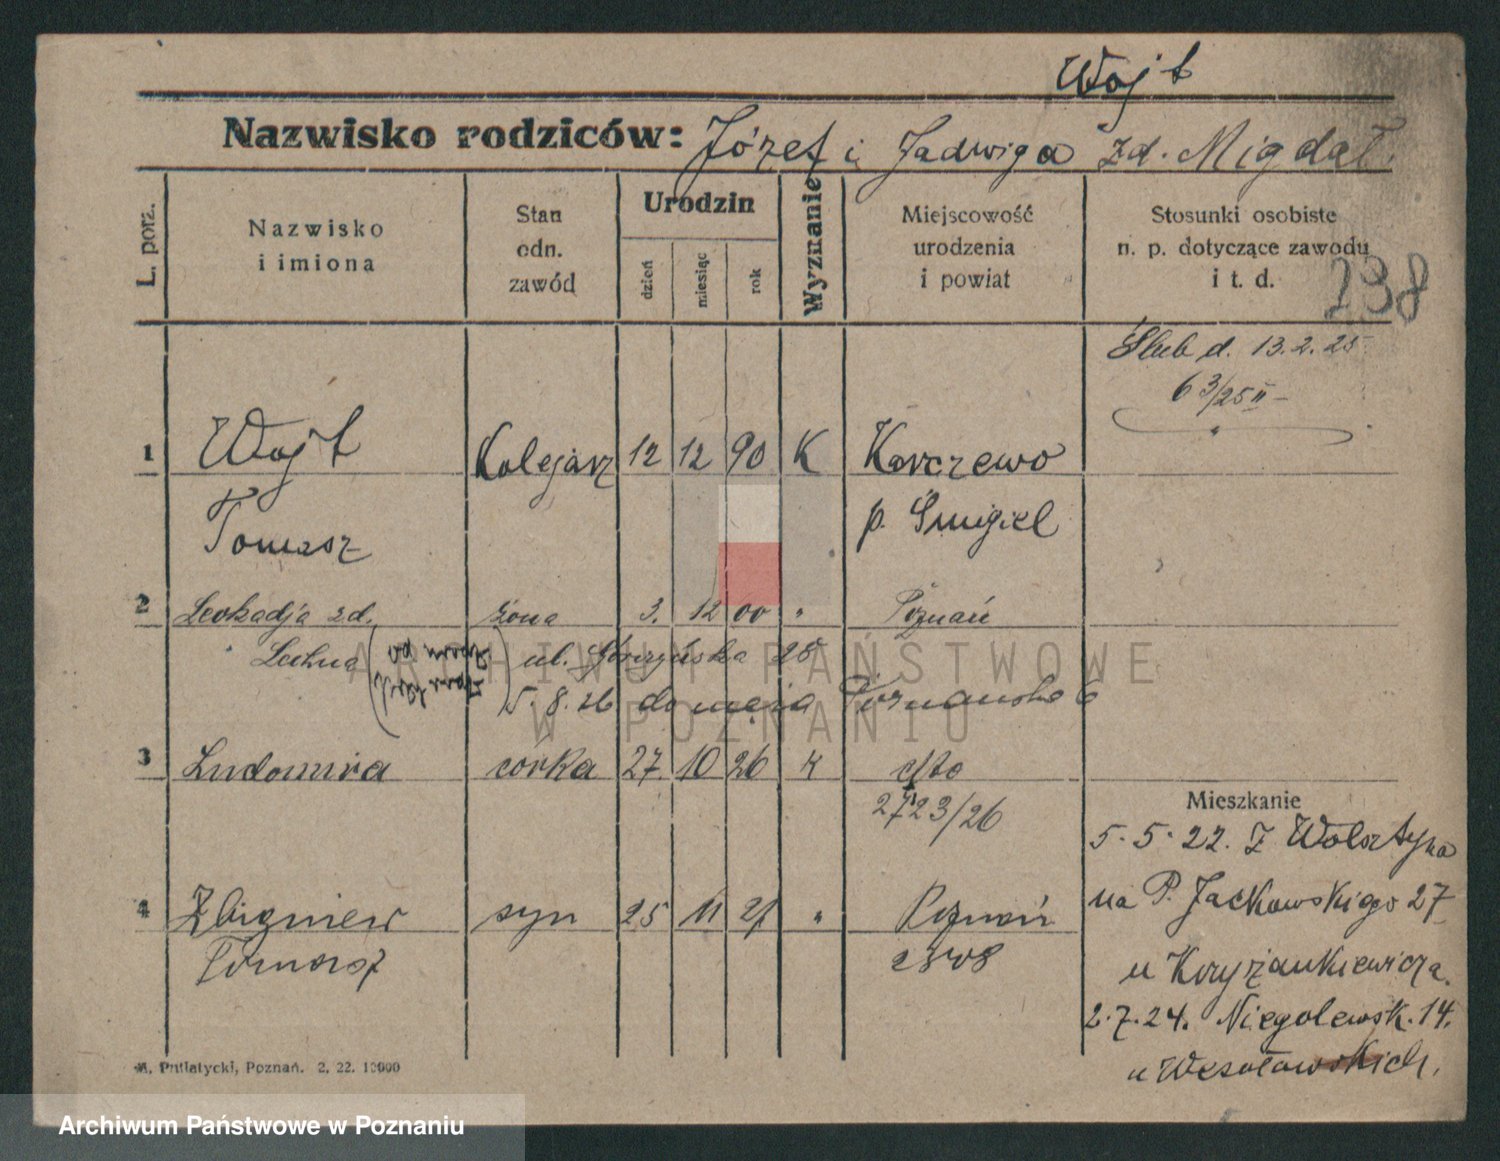 Wojt
Nazwisko rodziców: Józef i Jadwiga zd. Migdał.
L. porz.
Nazwisko
i imiona
Stan
odn.
zawód
Urodzin
dzień
miesiąc
rok
Wyznanie
Miejscowość
urodzenia
i powiat
Stosunki osobiste
n. p. dotyczące zawodu
i t. d.
238
Ślub d. 13.2.25
63/25 II
1 Wojt Kolejarz 12 12 90 K Karczewo
Tomasz p. Śmigiel
2 Leokadja zd. żona 3. 12 00 " Poznań
ul. 28
5.8.26 do męża Poznańska 6
3 Ludomira córka 27. 10 26 K
2723/26
Mieszkanie
5.5.22. Z Wolsztyna
4 Zbigniew syn 25 11 27 " Poznań
na P. Jackowskiego 27
Tomasz
u Krzyżankiewicza.
2.7.24. Niegolewsk. 14.
u Wesołowskich.
M. Putiatycki, Poznań. 2. 22. 10000
ARCHIWUM PAŃSTWOWE
W POZNANIU
Archiwum Państwowe w Poznaniu